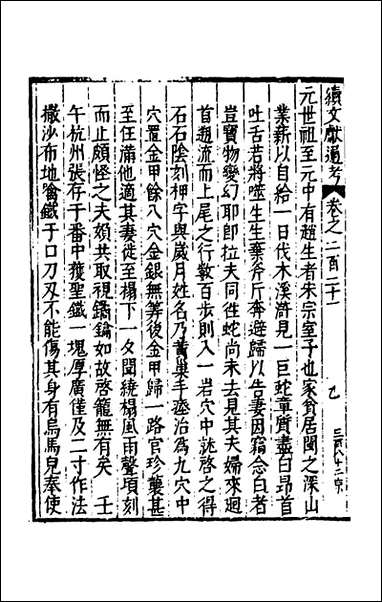 續文獻通考卷之二百二十
元世祖至元中有趙生者朱宗室子也家貧居閩之深山
業薪以自給一日伐木溪滸見一巨蛇章質盡白昂首
吐舌若將噬生生棄斧斤奔避歸以告妻因竊念白者
豈寶物變幻耶即拉夫同往蛇尚未去見其夫婦來迴
首趨流而上尾之行數百步則入一岩穴中就啓之得
石石陰刻押字與歲月姓名乃黃巢手瘞治為九穴中
穴置金甲餘八穴金銀無筭後金甲歸一路官珍襲甚
至任滿他適其妻徙至榻下一夕聞繞榻風雨聲頃刻
而止頗怪之夫頻共取視鐍鑰如故啓籠無有矣 壬
午杭州張存于番中獲聖鐵一塊厚廣僅及二寸作法
撒沙布地噙鐵于口刀刃不能傷其身有烏馬兒奉使